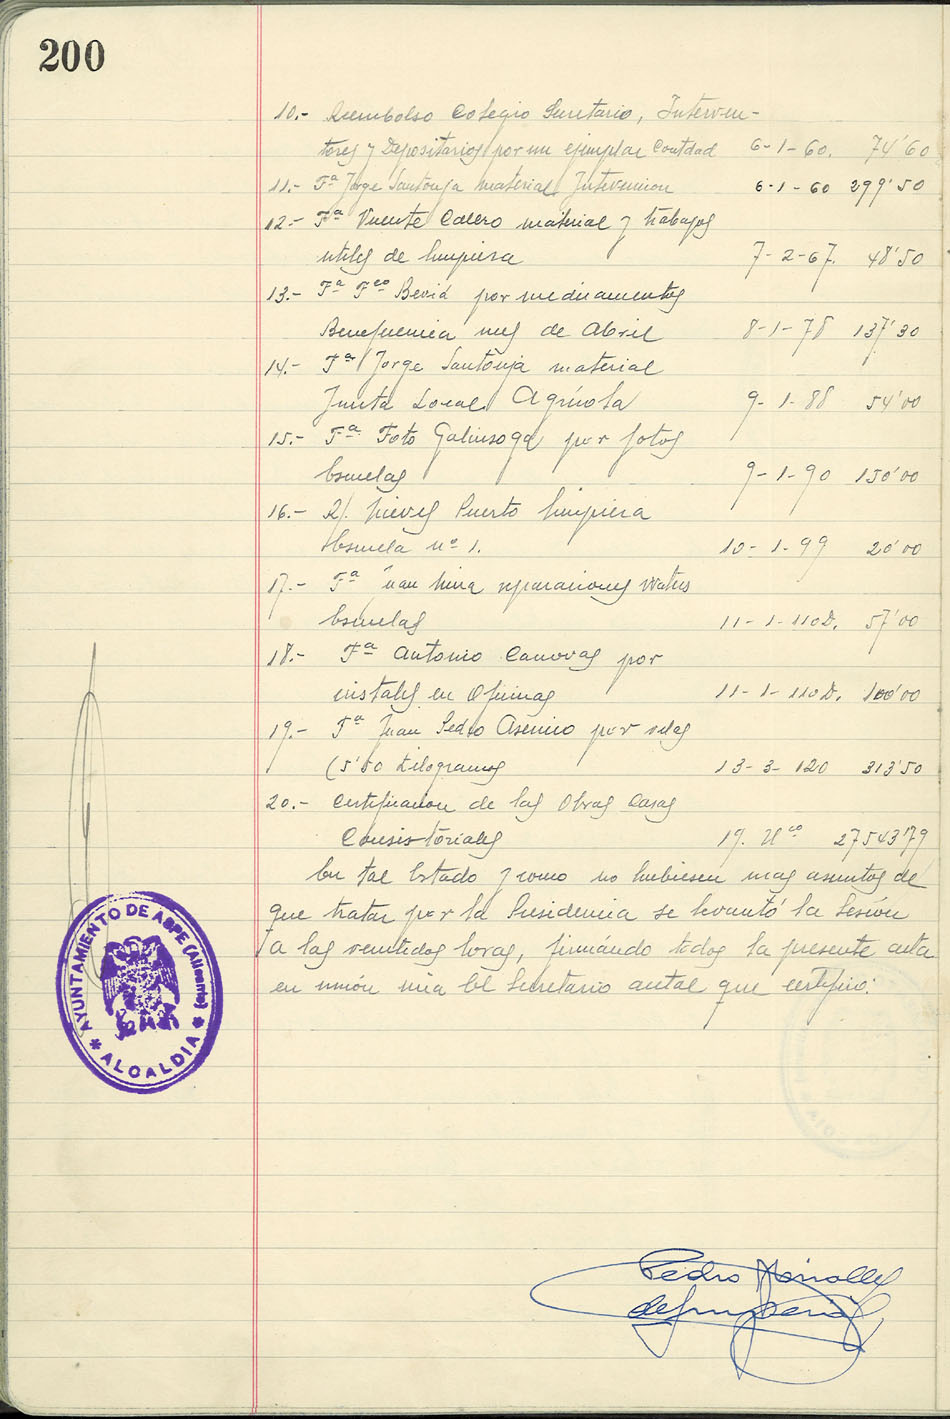 200
10.- Reembolso Colegio Secretario, Interven-
tores y Depositarios por un ejemplar Contdad 6-1-60. 74'60
11.- Fª Jorge Santonja material Intervención 6-1-60 299'50
12.- Fª Vicente Calero material y trabajos
utiles de limpieza 7-2-67. 48'50
13.- Fª Fco Beviá por medicamentos
Beneficencia mes de Abril 8-1-78 137'30
14.- Fª Jorge Santonja material
Junta Local Agrícola 9-1-88 54'00
15.- Fª Foto Galinsoga por fotos
Escuelas 9-1-90 150'00
16.- R/. Nieves Puerto limpieza
Escuela nº 1. 10-1-99 20'00
17.- Fª Juan Mira reparaciones Waters
Escuelas 11-1-110D. 57'00
18.- Fª Antonio Canovas por
instales en Oficinas 11-1-110D. 100'00
19.- Fª Juan Pedro Asencio por velas
(5'50 Kilogramos 13-3-120 313'50
20.- Certificacion de las Obras Casas
Consistoriales 19. Uco 27543'79
En tal Estado y como no hubiesen mas asuntos de
que tratar por la Presidencia se levantó la Sesión
a las veintidos horas, firmándo todos la presente acta
en unión mia El Secretario actal que certifico.
AYUNTAMIENTO DE ASPE (Alicante)
* ALCALDIA *
Pedro